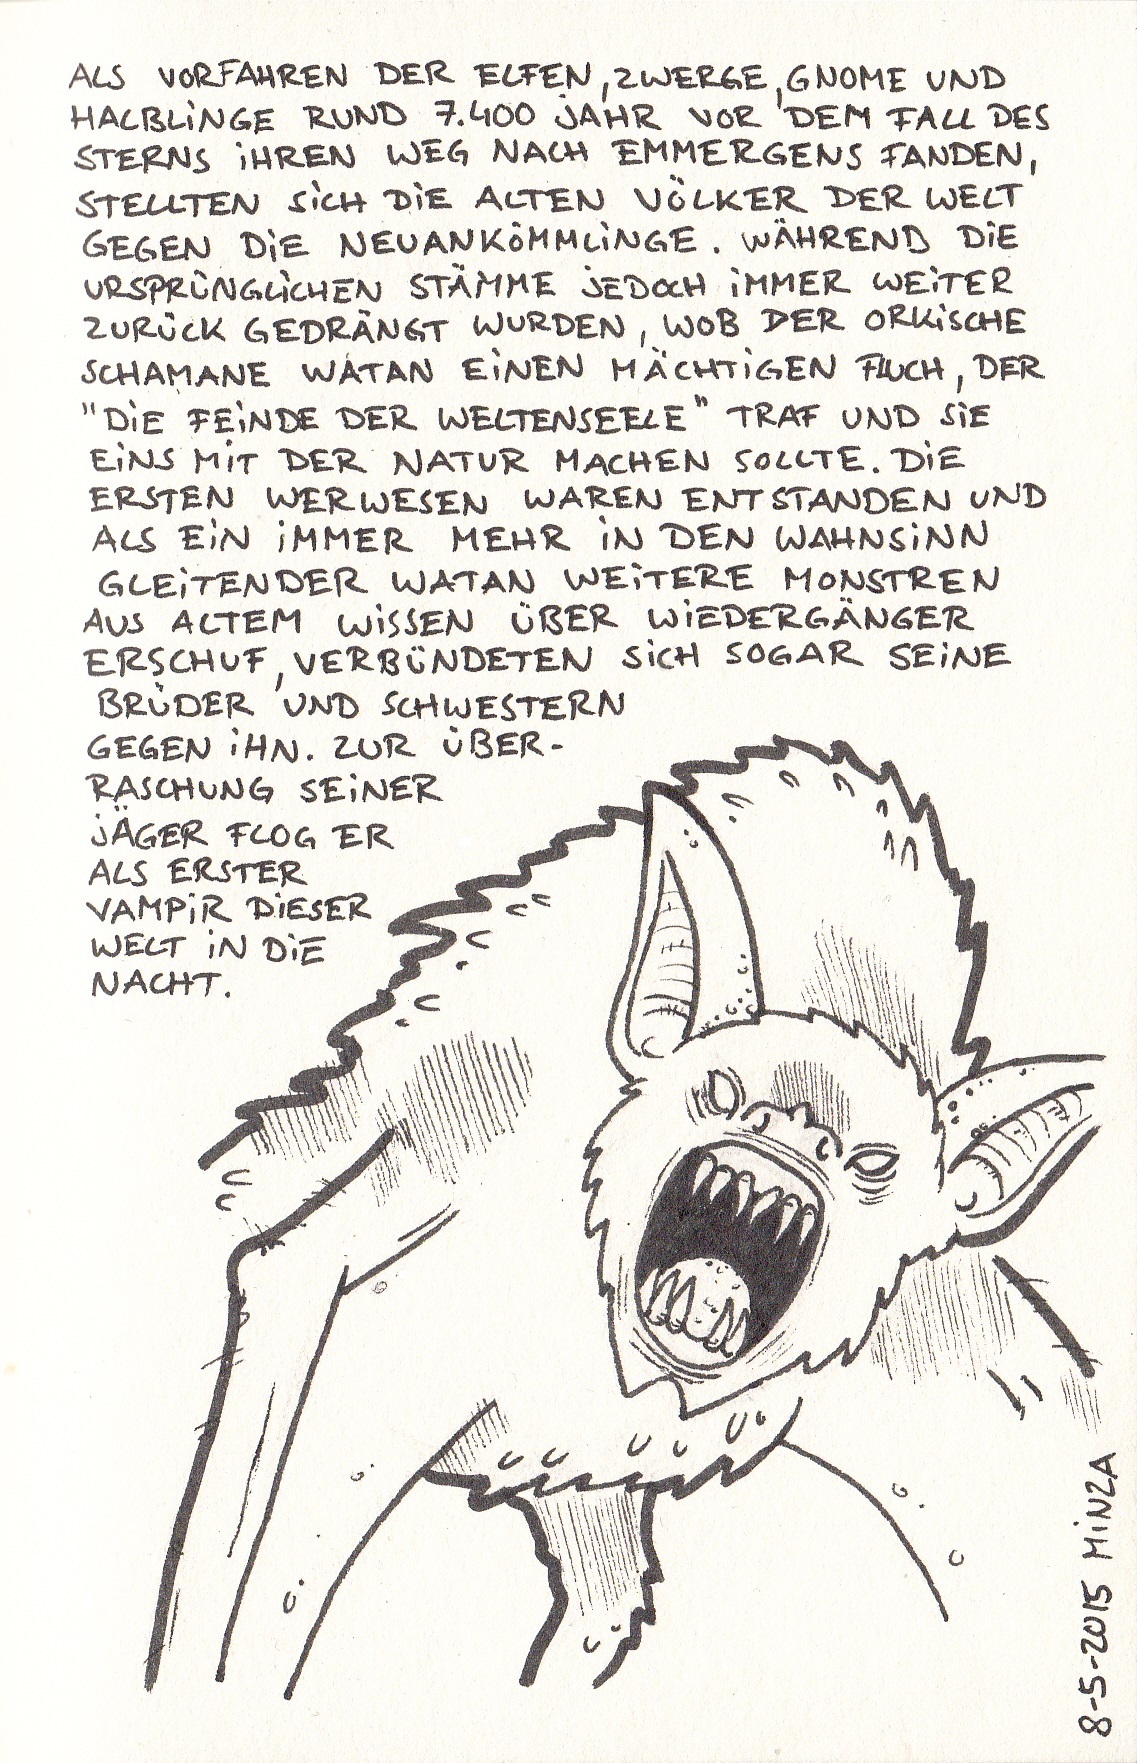 ALS VORFAHREN DER ELFEN, ZWERGE, GNOME UND
HALBLINGE RUND 7.400 JAHR VOR DEM FALL DES
STERNS IHREN WEG NACH EMMERGENS FANDEN,
STELLTEN SICH DIE ALTEN VÖLKER DER WELT
GEGEN DIE NEUANKÖMMLINGE. WÄHREND DIE
URSPRÜNGLICHEN STÄMME JEDOCH IMMER WEITER
ZURÜCK GEDRÄNGT WURDEN, WOB DER ORKISCHE
SCHAMANE WATAN EINEN MÄCHTIGEN FLUCH, DER
"DIE FEINDE DER WELTENSEELE" TRAF UND SIE
EINS MIT DER NATUR MACHEN SOLLTE. DIE
ERSTEN WERWESEN WAREN ENTSTANDEN UND
ALS EIN IMMER MEHR IN DEN WAHNSINN
GLEITENDER WATAN WEITERE MONSTREN
AUS ALTEM WISSEN ÜBER WIEDERGÄNGER
ERSCHUF, VERBÜNDETEN SICH SOGAR SEINE
BRÜDER UND SCHWESTERN
GEGEN IHN. ZUR ÜBER-
RASCHUNG SEINER
JÄGER FLOG ER
ALS ERSTER
VAMPIR DIESER
WELT IN DIE
NACHT.
8-5-2015 MINZA